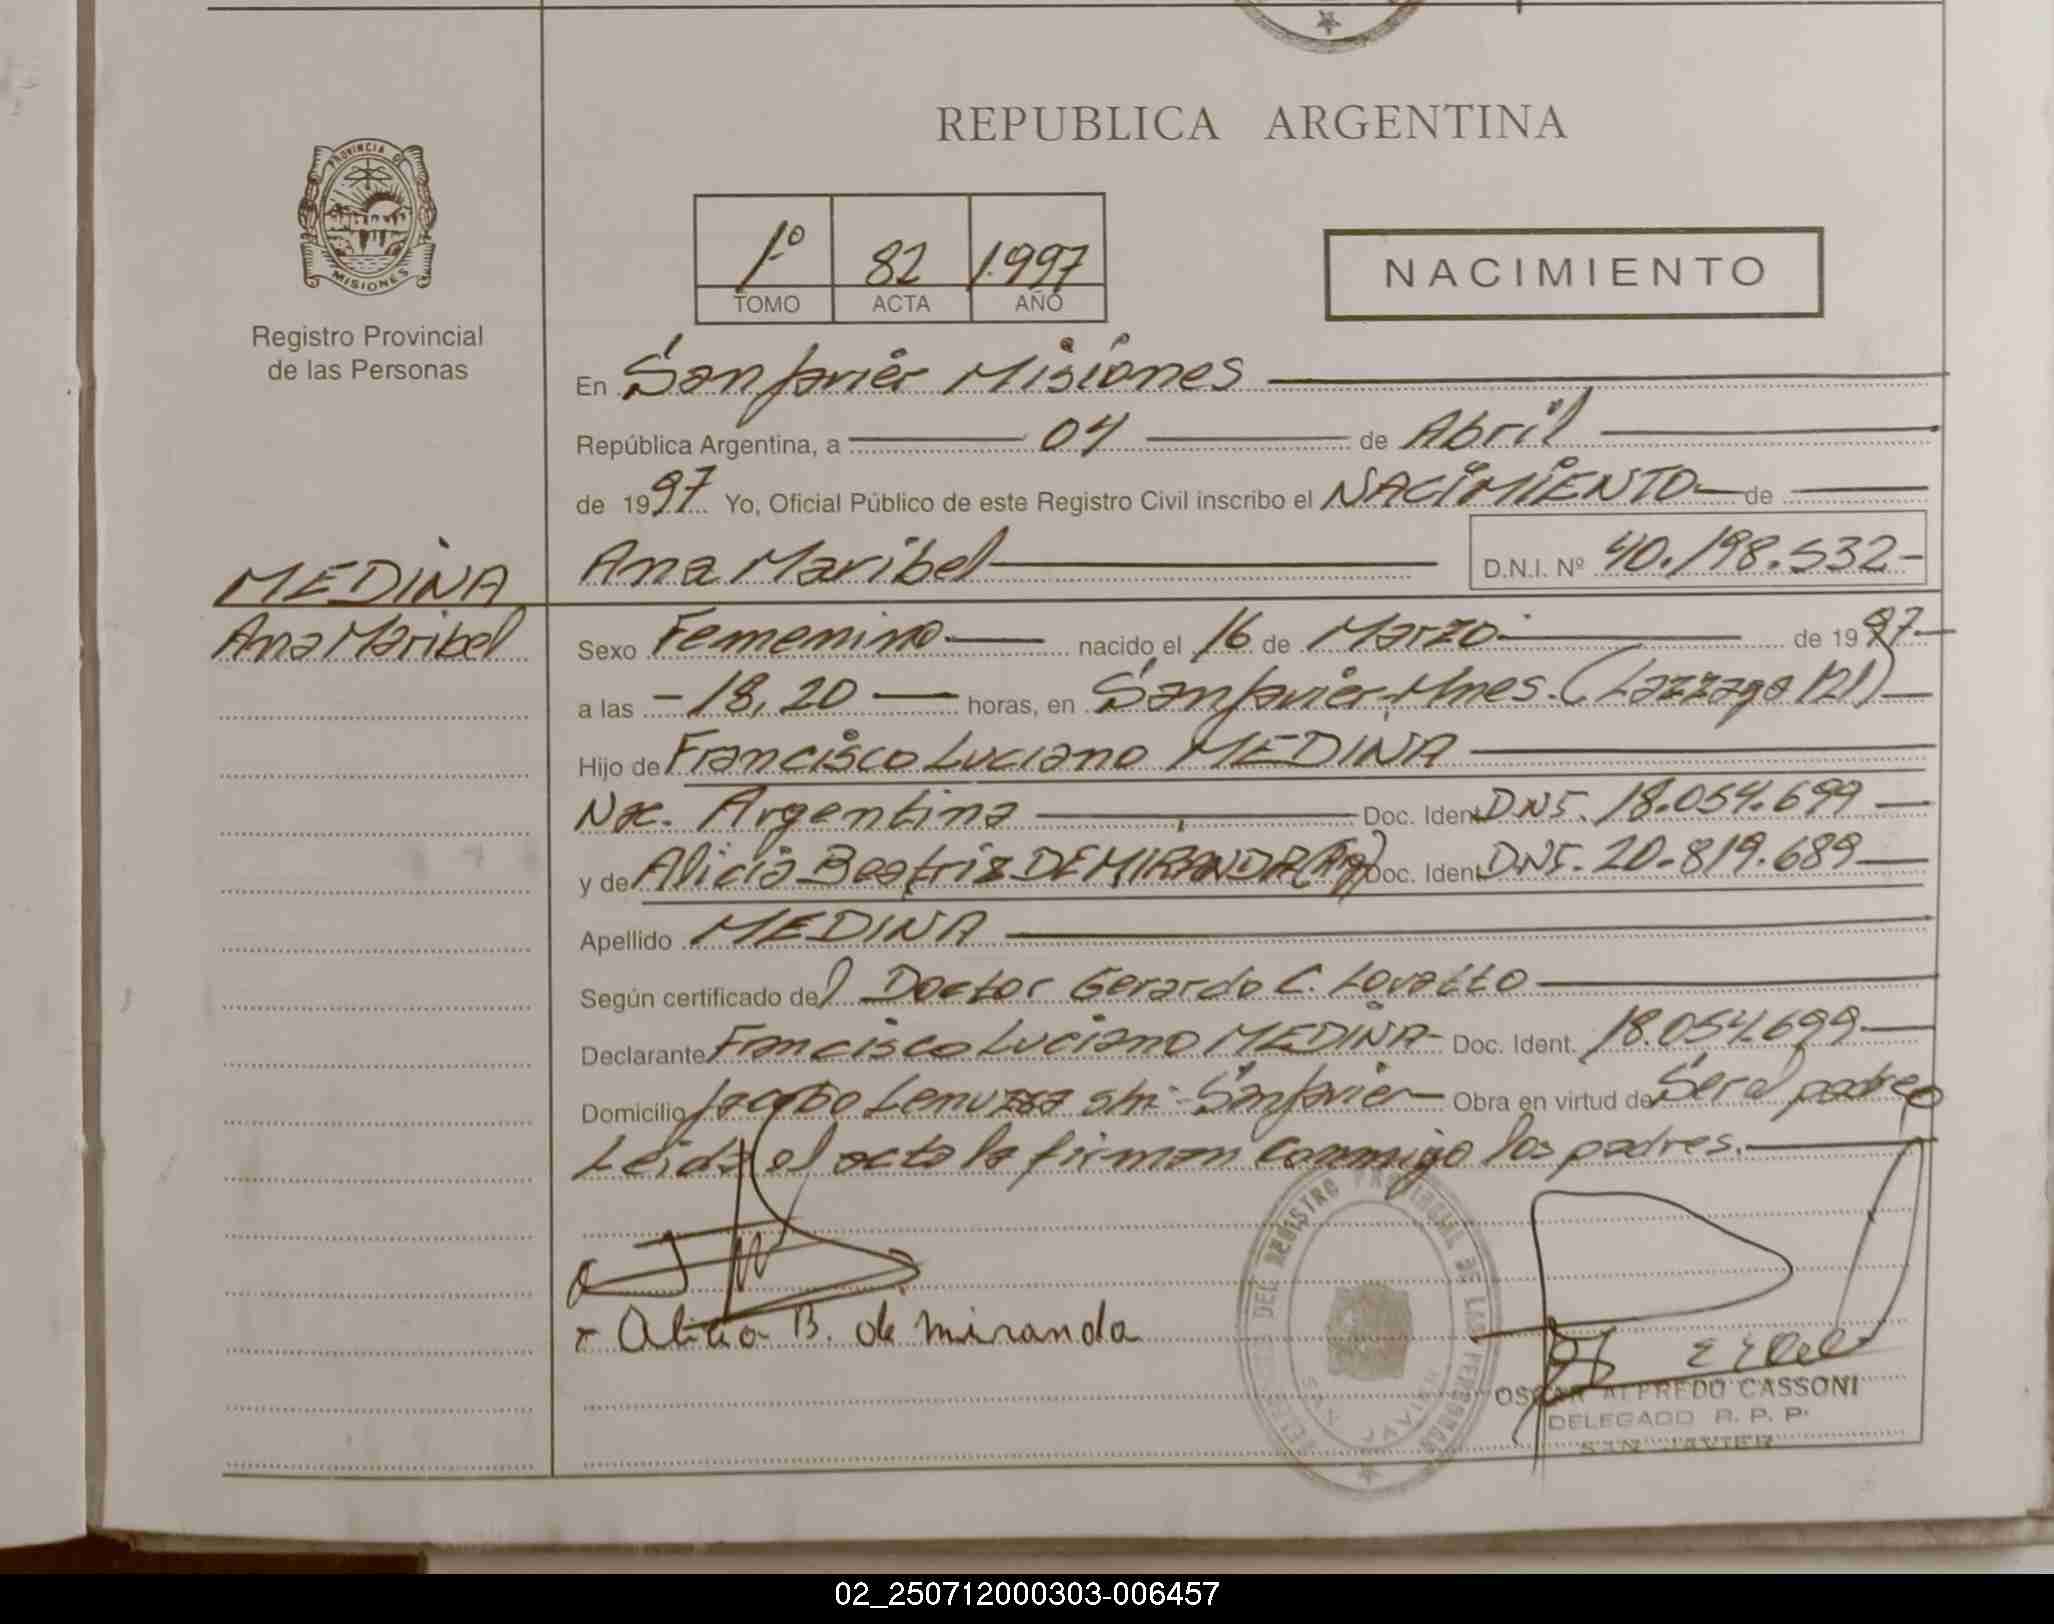 REPUBLICA ARGENTINA
PROVINCIA DE
MISIONES
Registro Provincial
de las Personas
1º 82 1.997
TOMO ACTA AÑO
NACIMIENTO
En San Javier Misiones
República Argentina, a 04 de Abril
de 1997 Yo, Oficial Público de este Registro Civil inscribo el NACIMIENTO de
MEDINA
Ana Maribel
Ana Maribel D.N.I. Nº 40.198.532-
Sexo Femenino nacido el 16 de Marzo de 1997
a las -18,20 horas, en San Javier, Mnes. (Lazzaga 121)
Hijo de Francisco Luciano MEDINA
Nac. Argentina Doc. Ident DNI. 18.054.699
y de Alicia Beatriz DE MIRANDA (Arg) Doc. Ident DNI. 20.819.689
Apellido MEDINA
Según certificado del Doctor Gerardo C. Lovatto
Declarante Francisco Luciano MEDINA Doc. Ident. 18.054.699
Domicilio Jacobo s/n- San Javier Obra en virtud de Ser el padre
Leida el acta la firman conmigo los padres.
Alicia B. de miranda
DEL REGISTRO PROVINCIAL DE LAS PERSONAS
SAN JAVIER
OSCAR ALFREDO CASSONI
DELEGADO R. P. P.
SAN JAVIER
02_250712000303-006457